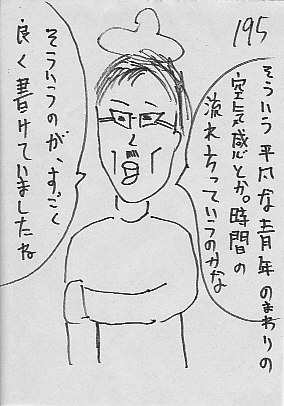 195
そういう平凡な青年のまわりの
空気感とか。時間の
流れ方っていうのかな
そういうのが、すごく
良く書けていましたね